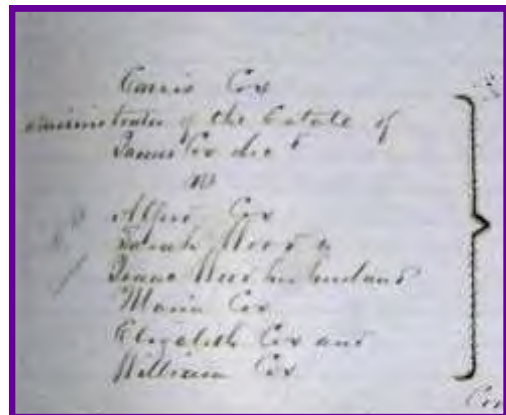 Carrie Cox
administrator of the Estate of
James Cox dec d
vs
Cox
Sarah &
Isaac her husband
Maria Cox
Elizabeth Cox and
William Cox